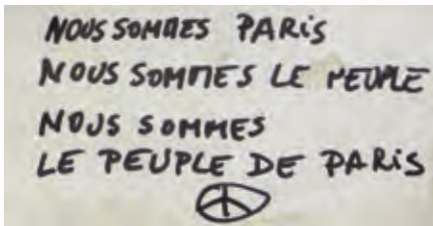 NOUS SOMMES PARiS
NOUS SOMMES LE PEUPLE
NOUS SOMMES
LE PEUPLE DE PARiS